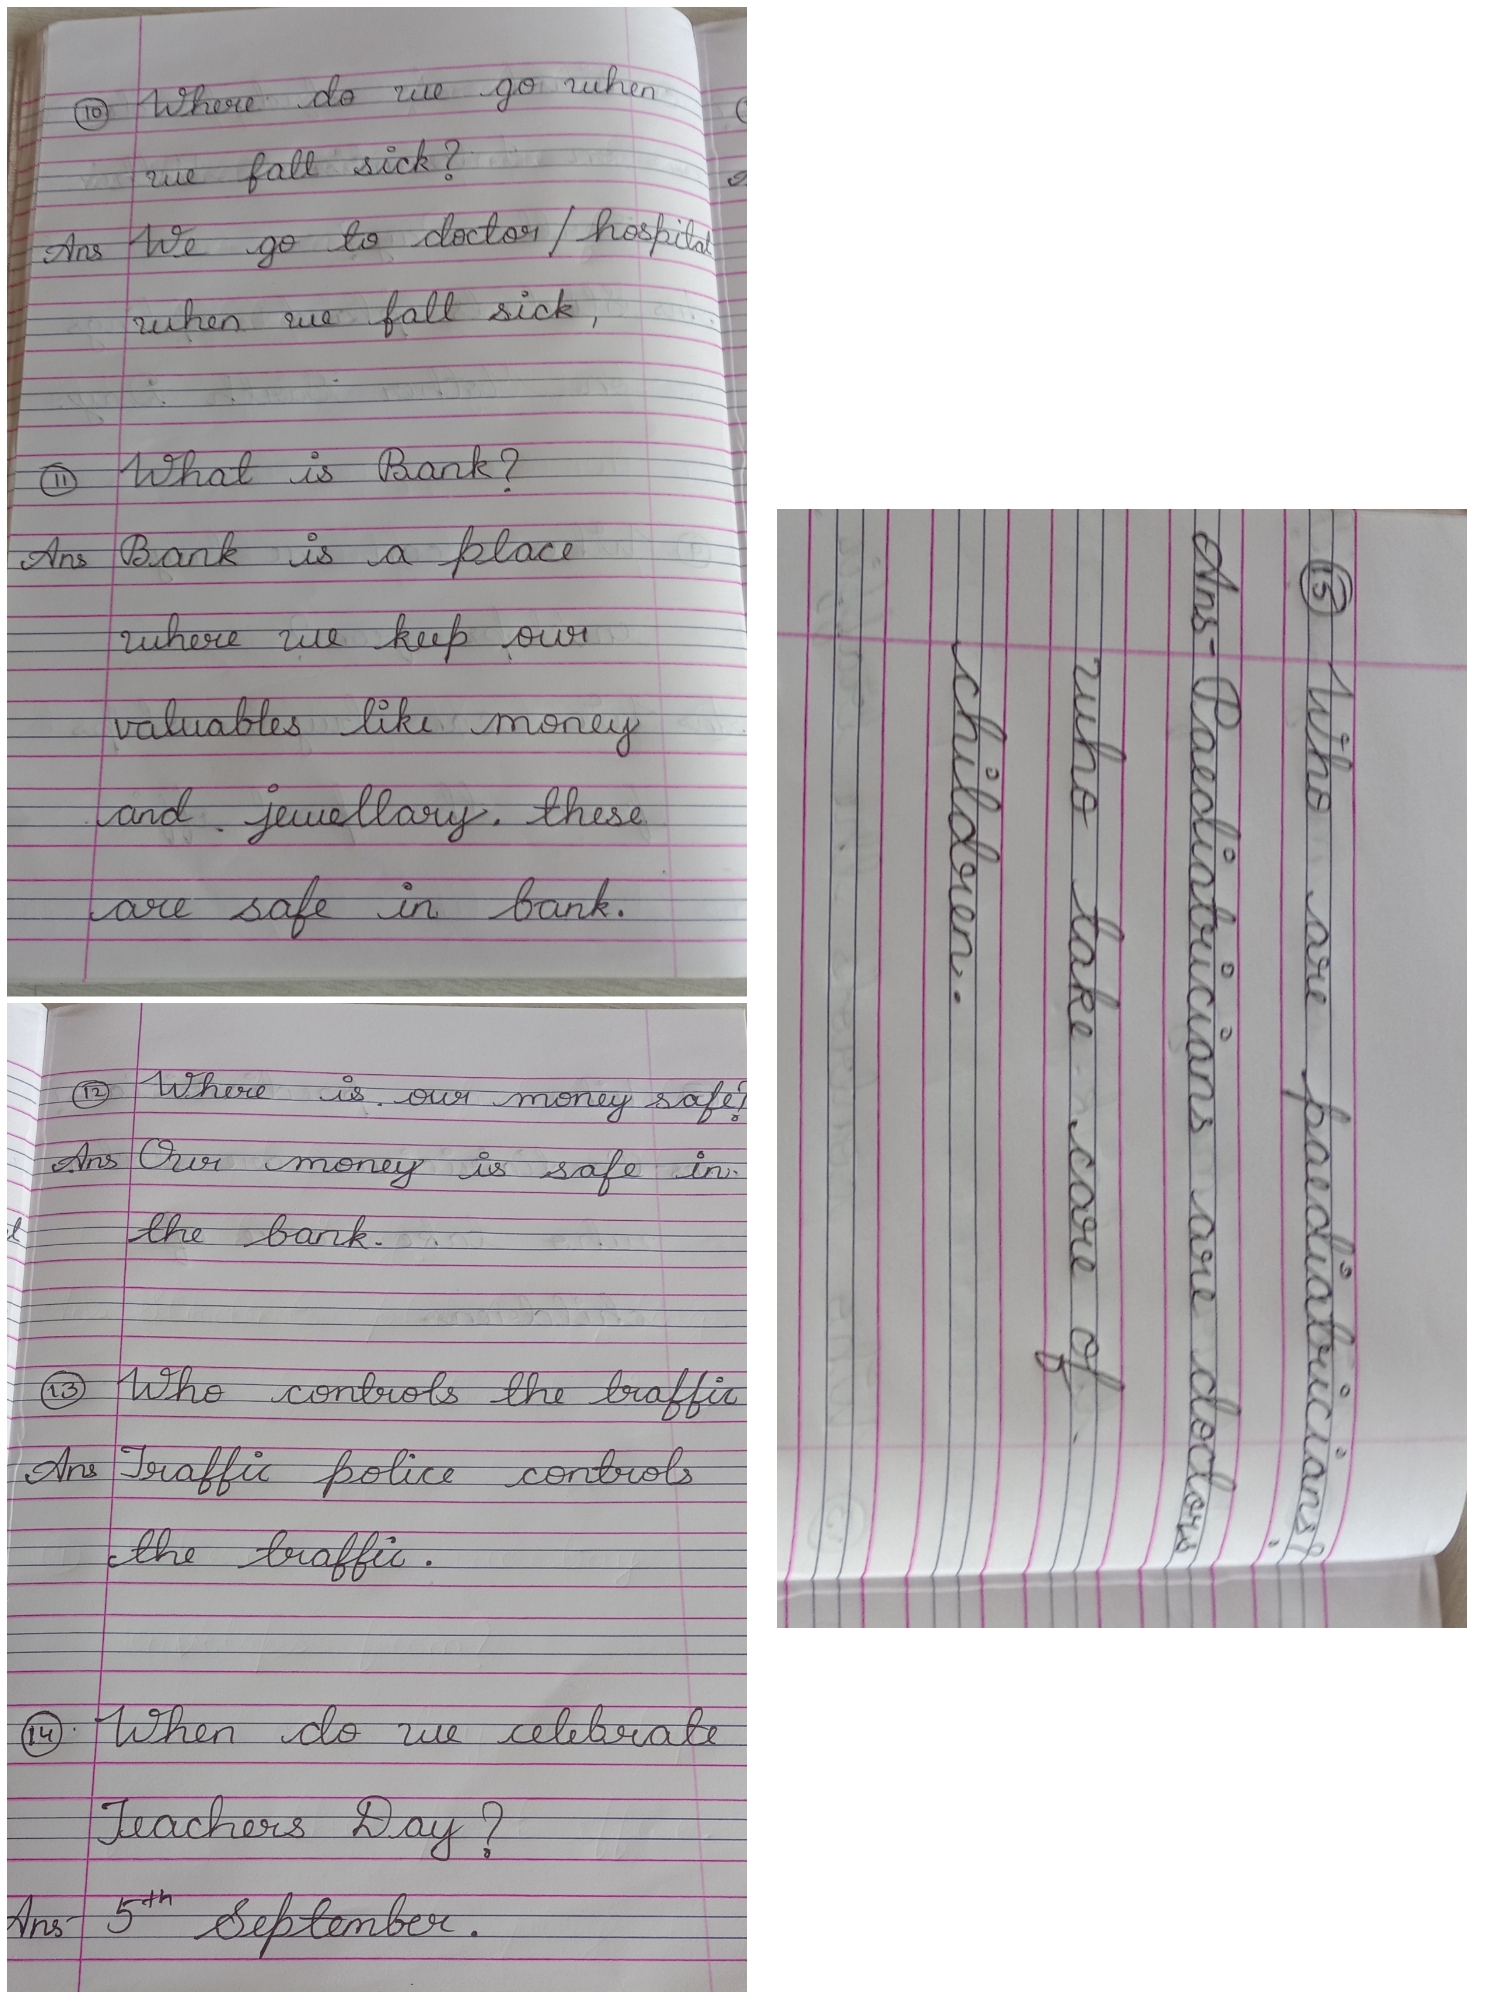 10 Where do we go when
we fall sick?
Ans We go to doctor/hospital
when we fall sick,
11 What is Bank?
Ans Bank is a place
where we keep our
valuables like money
and jewellary. these
are safe in bank.
12 Where is our money safe?
Ans Our money is safe in
the bank.
13 Who controls the traffic
Ans Traffic police controls
the traffic.
14 When do we celebrate
Teachers Day?
Ans- 5th September.
15 Who are paediatricians?
Ans- Paediatricians are doctors
who take care of
children.